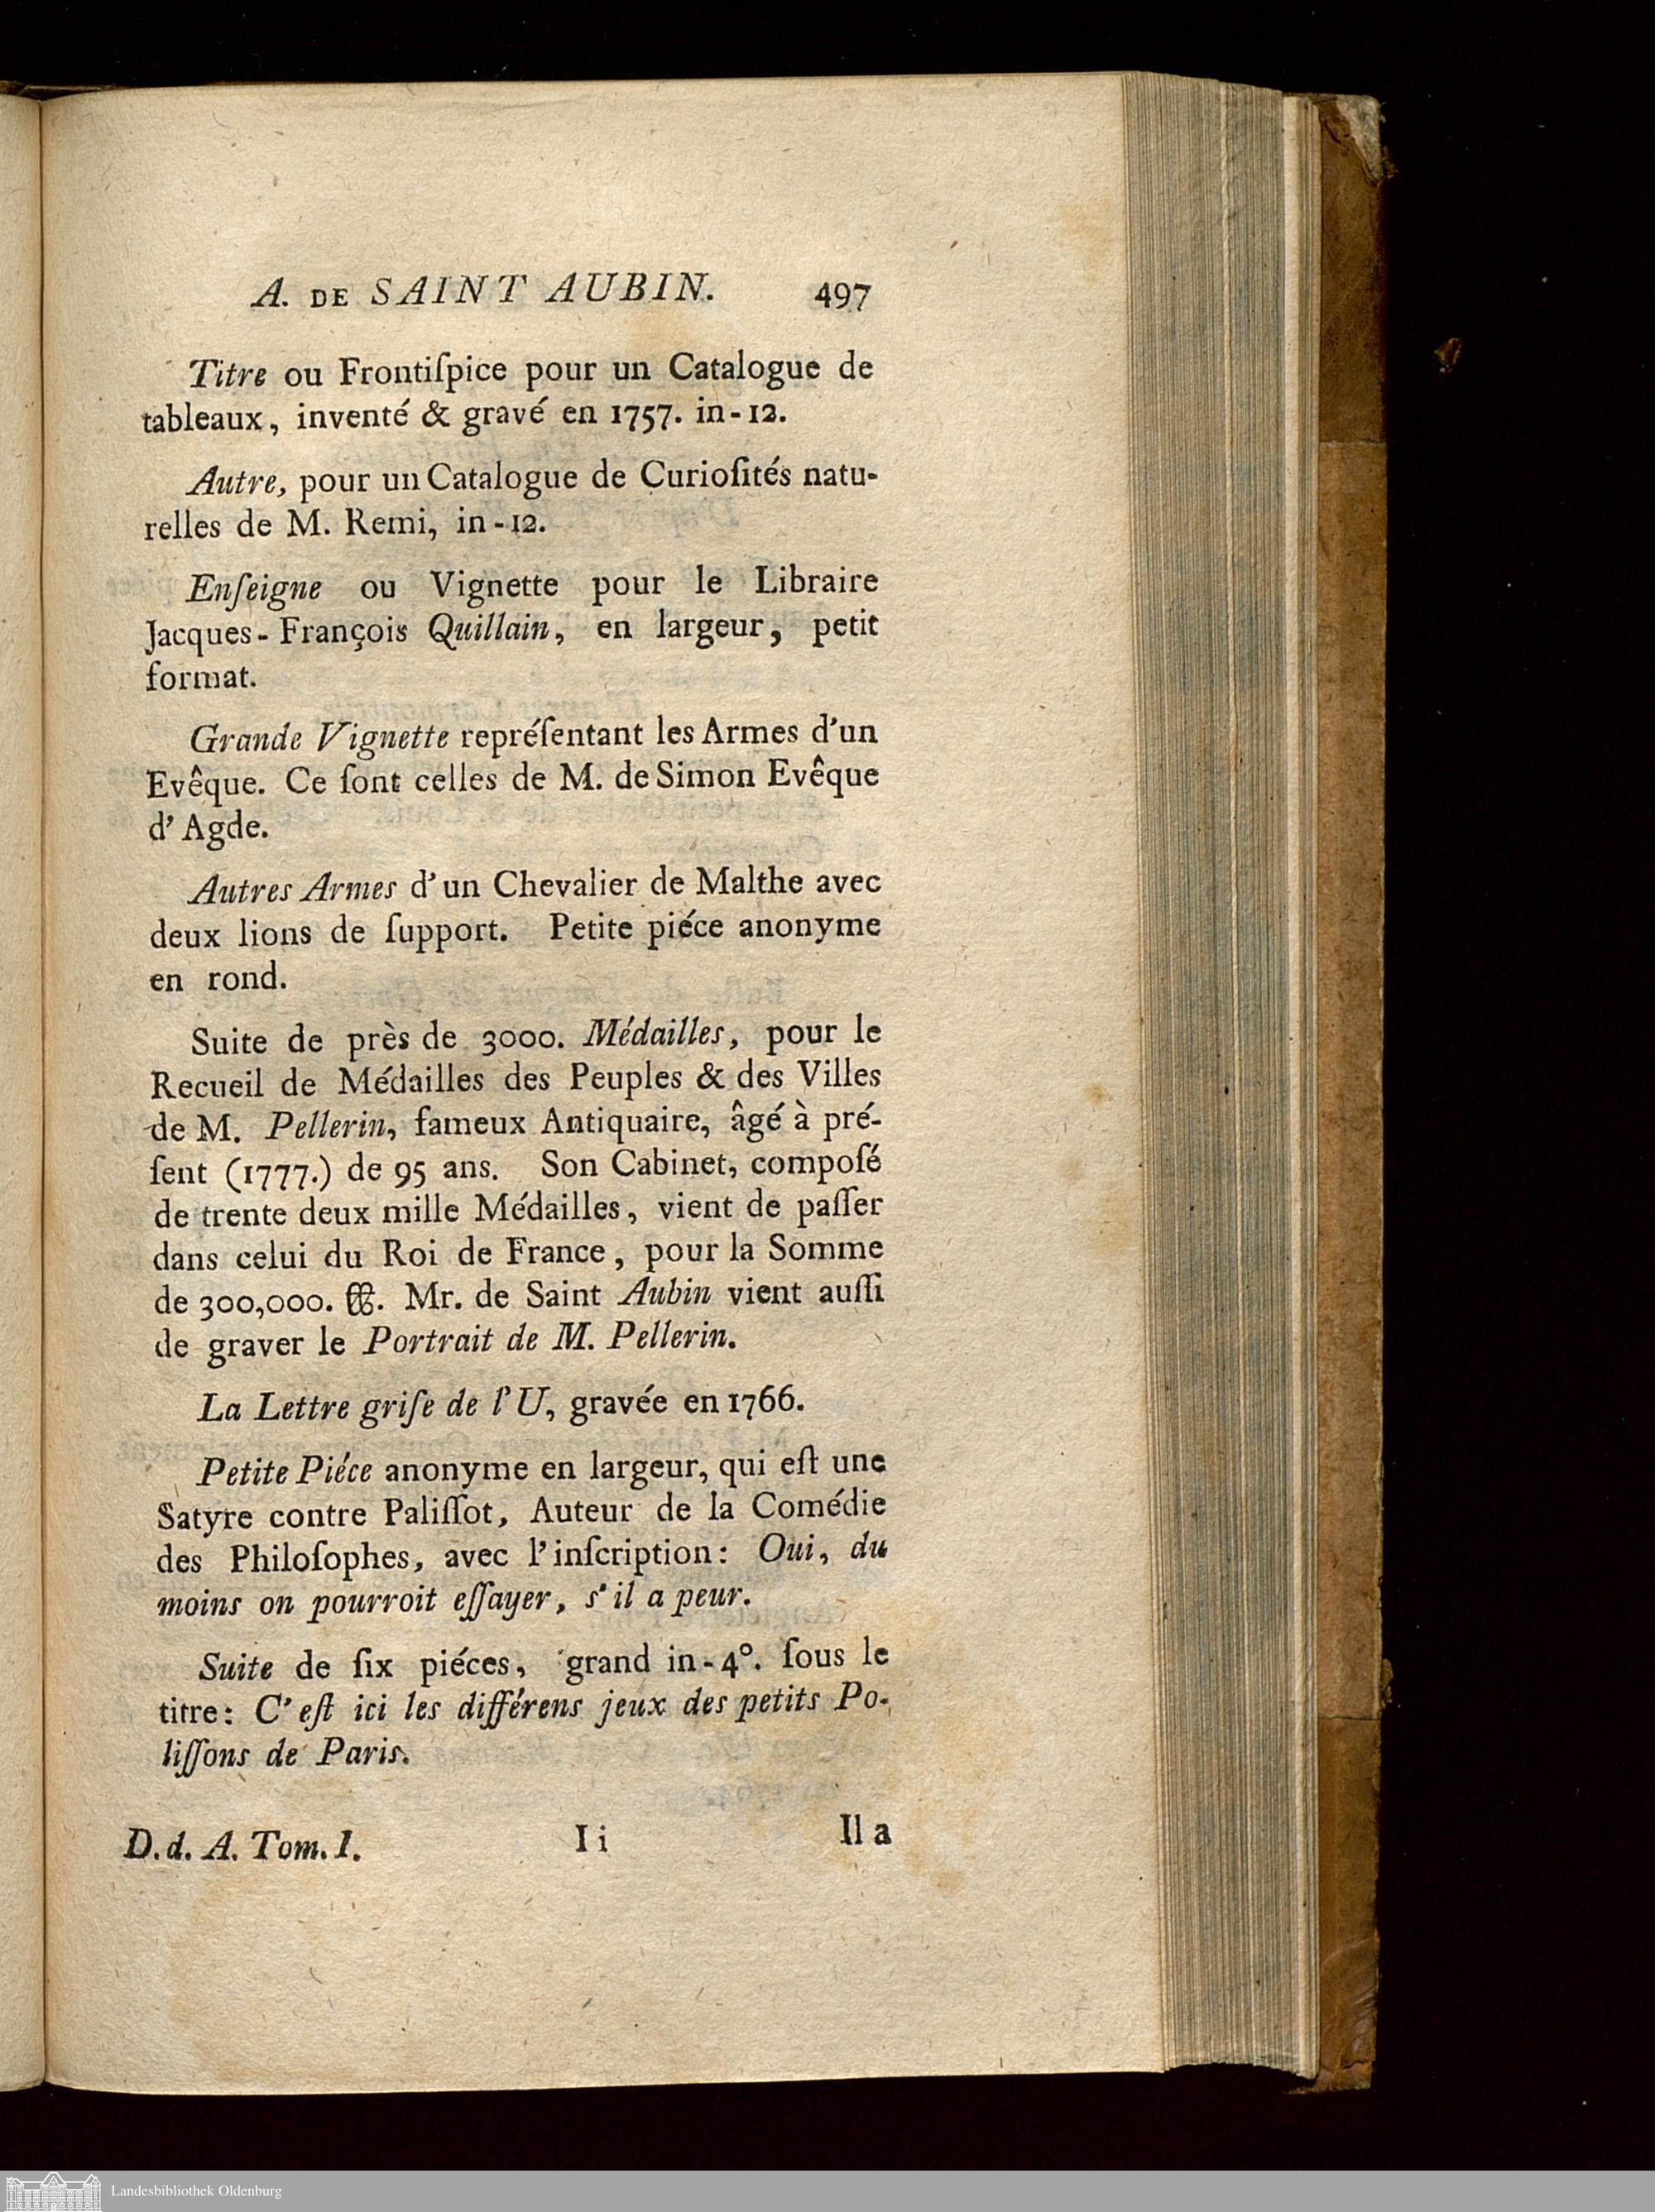 A. DE SAINT AUBIN. 497
Titre ou Frontiſpice pour un Catalogue de
tableaux, inventé & gravé en 1757. in-12.
Autre, pour un Catalogue de Curioſités natu-
relles de M. Remi, in-12.
Enſeigne ou Vignette pour le Libraire
Jacques-François Quillain, en largeur, petit
format.
Grande Vignette repréſentant les Armes d'un
Evêque. Ce ſont celles de M. de Simon Evêque
d'Agde.
Autres Armes d'un Chevalier de Malthe avec
deux lions de ſupport. Petite piéce anonyme
en rond.
Suite de près de 3000. Médailles, pour le
Recueil de Médailles des Peuples & des Villes
de M. Pellerin, fameux Antiquaire, âgé à pré-
ſent (1777.) de 95 ans. Son Cabinet, compoſé
de trente deux mille Médailles, vient de paſſer
dans celui du Roi de France, pour la Somme
de 300,000. Mr. de Saint Aubin vient auſſi
de graver le Portrait de M. Pellerin.
La Lettre griſe de l'U, gravée en 1766.
Petite Piéce anonyme en largeur, qui eſt une
Satyre contre Paliſſot, Auteur de la Comédie
des Philoſophes, avec l'inſcription: Oui, du
moins on pourroit eſſayer, s'il a peur.
Suite de ſix piéces, grand in-4°. ſous le
titre: C'eſt ici les différens jeux des petits Po-
liſſons de Paris.
D. d. A. Tom. I. I i Il a
Landesbibliothek Oldenburg